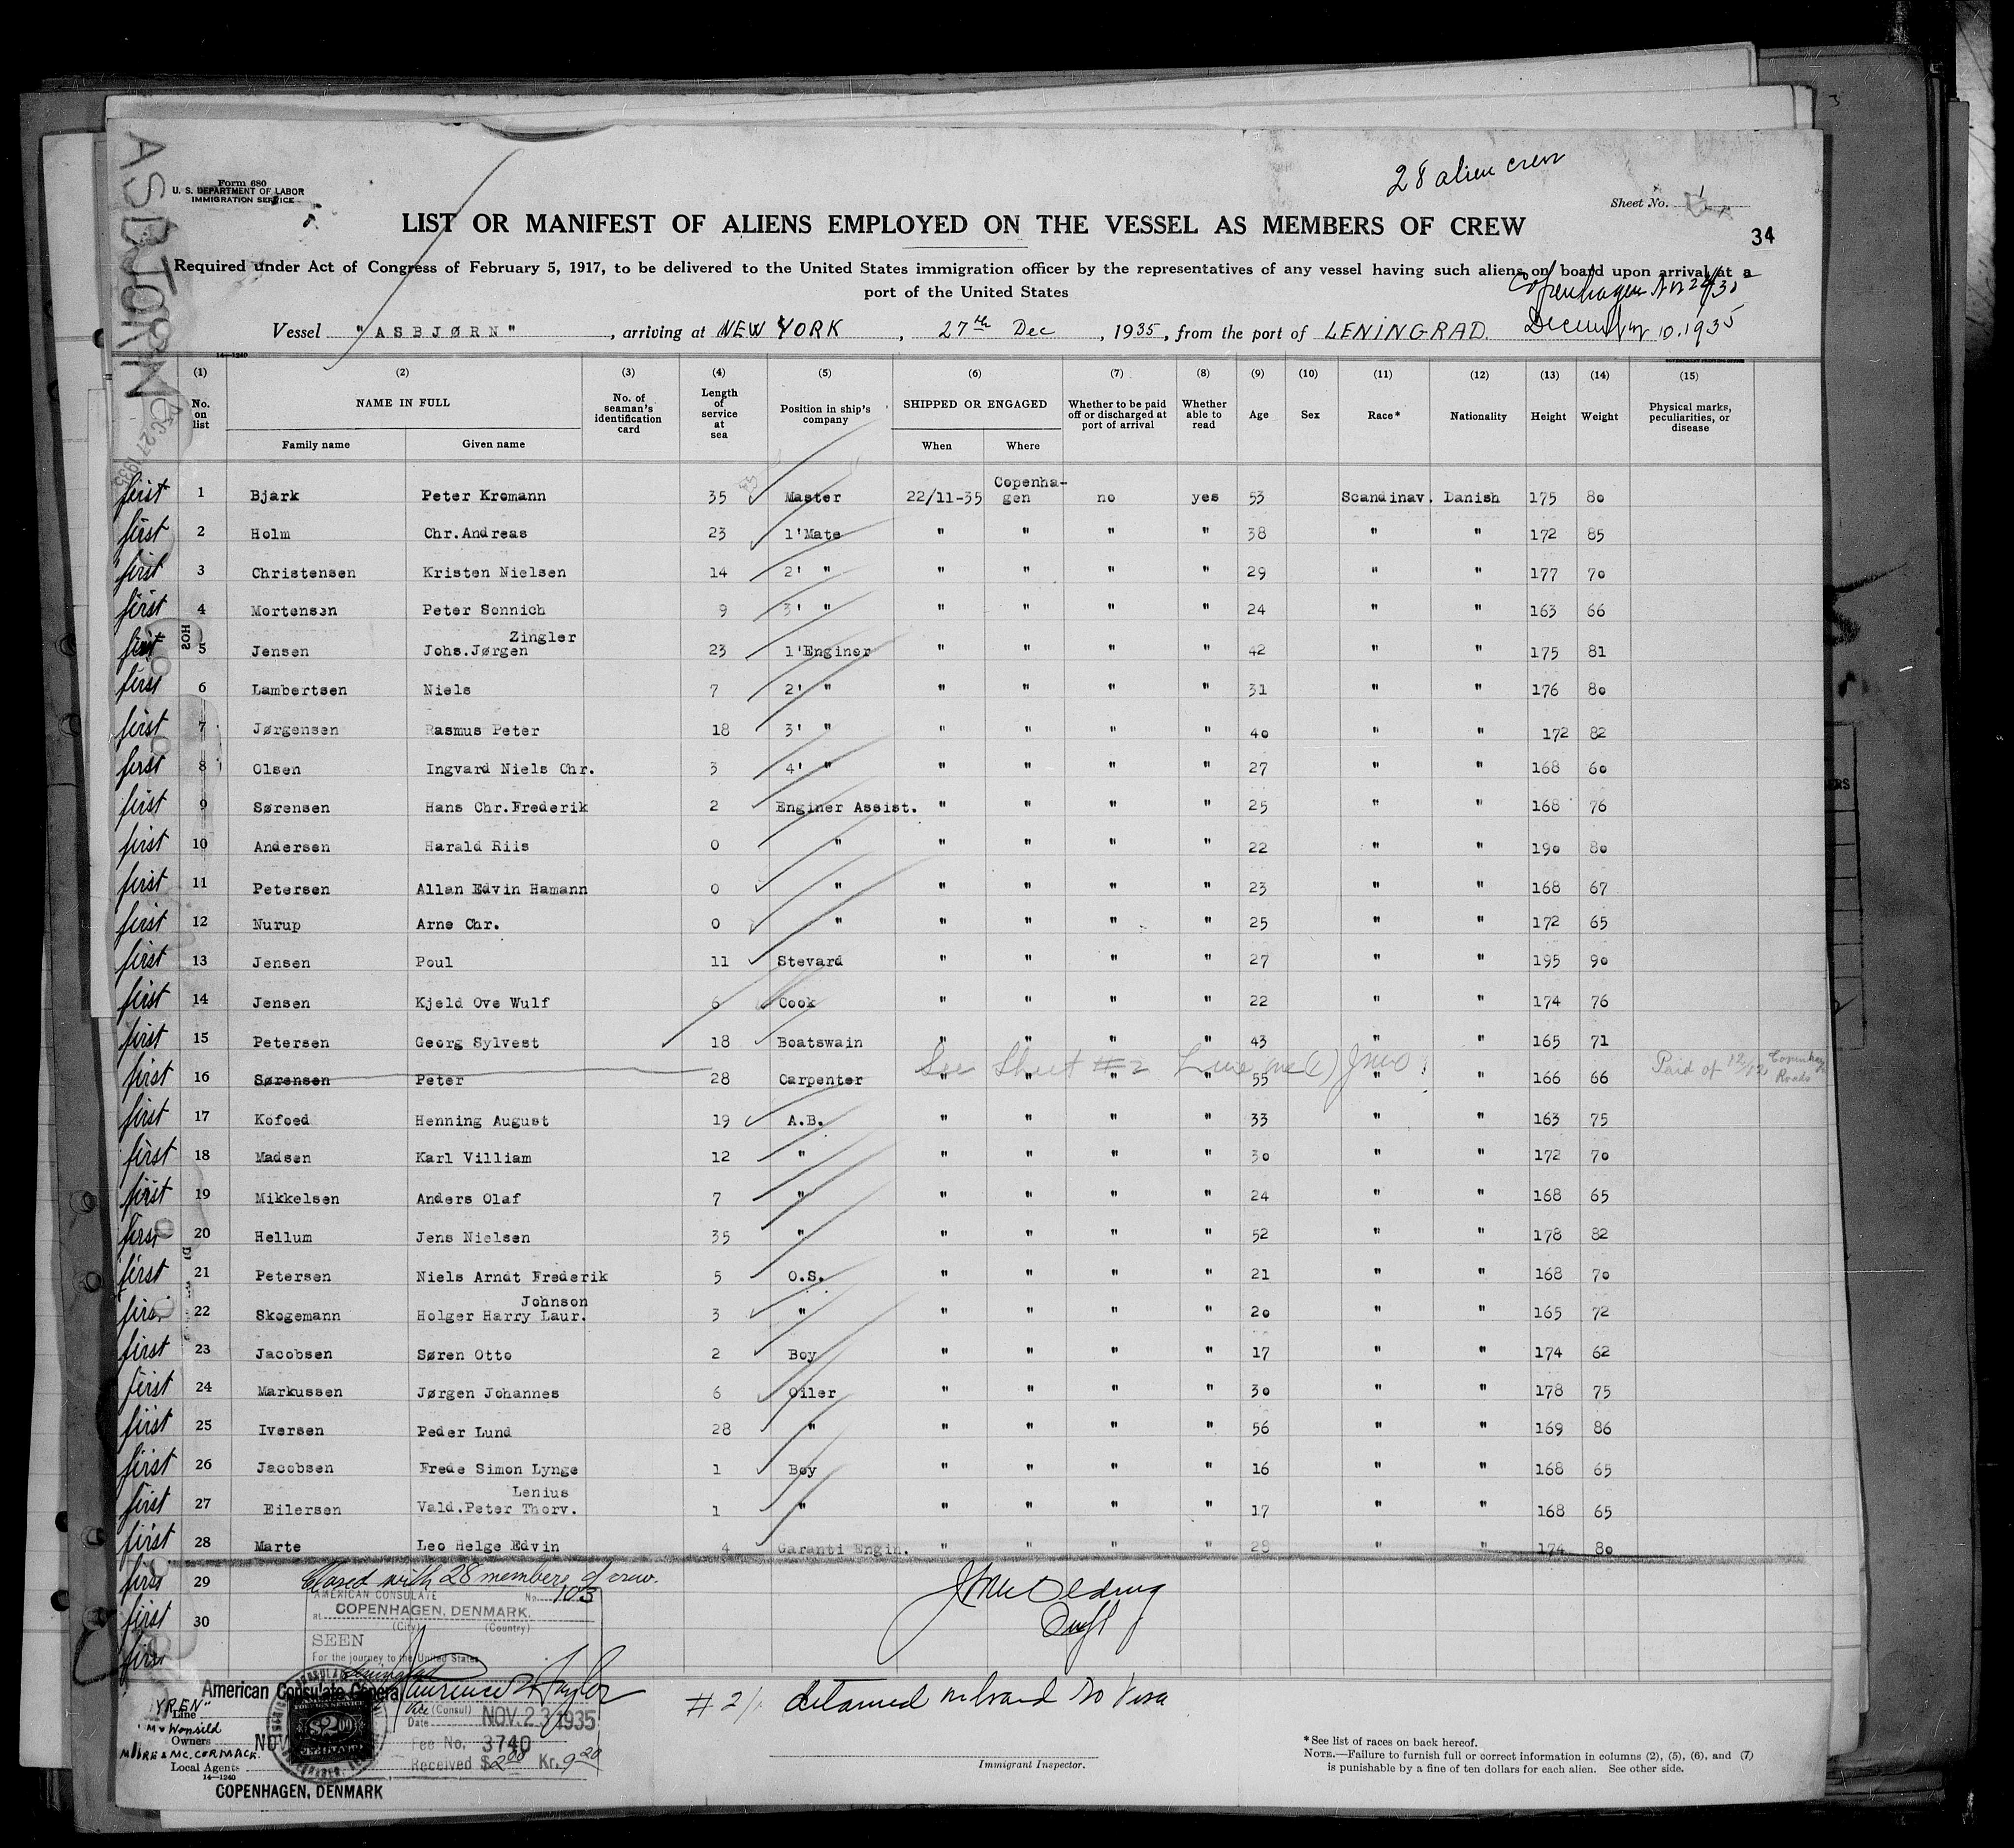 ASBJØRN
DEC 27 1935
Form 680
U. S. DEPARTMENT OF LABOR
IMMIGRATION SERVICE
28 alien crew
Sheet No. 1
34
LIST OR MANIFEST OF ALIENS EMPLOYED ON THE VESSEL AS MEMBERS OF CREW
Required under Act of Congress of February 5, 1917, to be delivered to the United States immigration officer by the representatives of any vessel having such aliens on board upon arrival at a
port of the United States
Copenhagen
Vessel "ASBJØRN", arriving at NEW YORK, 27th Dec, 1935, from the port of LENINGRAD. December 10. 1935
14—1240
(1) (2) (3) (4) (5) (6) (7) (8) (9) (10) (11) (12) (13) (14) (15)
No. on list NAME IN FULL No. of seaman's identification card Length of service at sea Position in ship's company SHIPPED OR ENGAGED Whether to be paid off or discharged at port of arrival Whether able to read Age Sex Race* Nationality Height Weight Physical marks, peculiarities, or disease
Family name Given name When Where
first 1 Bjark Peter Kromann 35 Master 22/11-35 Copenha-gen no yes 53 Scandinav. Danish 175 80
first 2 Holm Chr.Andreas 23 1'Mate " " " " 38 " " 172 85
first 3 Christensen Kristen Nielsen 14 2' " " " " " 29 " " 177 70
first 4 Mortensen Peter Sonnich 9 3' " " " " " 24 " " 163 66
first 5 Jensen Johs.Jørgen Zingler 23 1'Enginer " " " " 42 " " 175 81
first 6 Lambertsen Niels 7 2' " " " " " 31 " " 176 80
first 7 Jørgensen Rasmus Peter 18 3' " " " " " 40 " " 172 82
first 8 Olsen Ingvard Niels Chr. 3 4' " " " " " 27 " " 168 60
first 9 Sørensen Hans Chr.Frederik 2 Enginer Assist. " " " " 25 " " 168 76
first 10 Andersen Harald Riis 0 " " " " " 22 " " 190 80
first 11 Petersen Allan Edvin Hamann 0 " " " " " 23 " " 168 67
first 12 Nurup Arne Chr. 0 " " " " " 25 " " 172 65
first 13 Jensen Poul 11 Stevard " " " " 27 " " 195 90
first 14 Jensen Kjeld Ove Wulf 6 Cook " " " " 22 " " 174 76
first 15 Petersen Georg Sylvest 18 Boatswain " " " " 43 " " 165 71
See Sheet #2 Line one (1)
first 16 Sørensen Peter 28 Carpenter " " " " 55 " " 166 66 Paid of 12/12 Copenhag Roads
first 17 Kofoed Henning August 19 A.B. " " " " 33 " " 163 75
first 18 Madsen Karl Villiam 12 " " " " " 30 " " 172 70
first 19 Mikkelsen Anders Olaf 7 " " " " " 24 " " 168 65
first 20 Hellum Jens Nielsen 35 " " " " " 52 " " 178 82
first 21 Petersen Niels Arndt Frederik 5 O.S. " " " " 21 " " 168 70
first 22 Skogemann Holger Harry Laur. Johnson 3 " " " " " 20 " " 165 72
first 23 Jacobsen Søren Otto 2 Boy " " " " 17 " " 174 62
first 24 Markussen Jørgen Johannes 6 Oiler " " " " 30 " " 178 75
first 25 Iversen Peder Lund 28 " " " " " 56 " " 169 86
first 26 Jacobsen Frede Simon Lynge 1 Boy " " " " 16 " " 168 65
first 27 Eilersen Vald.Peter Thorv. Lenius 1 " " " " " 17 " " 168 65
first 28 Marte Leo Helge Edvin 4 Garanti Engin. " " " " 28 " " 174 80
first 29 Closed with 28 members of crew.
first 30
first
AMERICAN CONSULATE No. 103
At COPENHAGEN, DENMARK.
(City) (Country)
SEEN
For the journey to the United States
American Consulate General
Laurence W Taylor
Vice (Consul)
Date NOV. 23 1935
Fee No. 3740
Received $2.00 Kr. 9.20
$2.00
NOV
"YREN" Line
Mr Wonsild
Owners
MOORE & MC. CORMACK.
Local Agents
14—1240
COPENHAGEN, DENMARK
#21. detained on board no Visa
Immigrant Inspector.
* See list of races on back hereof.
NOTE.—Failure to furnish full or correct information in columns (2), (5), (6), and (7)
is punishable by a fine of ten dollars for each alien. See other side.